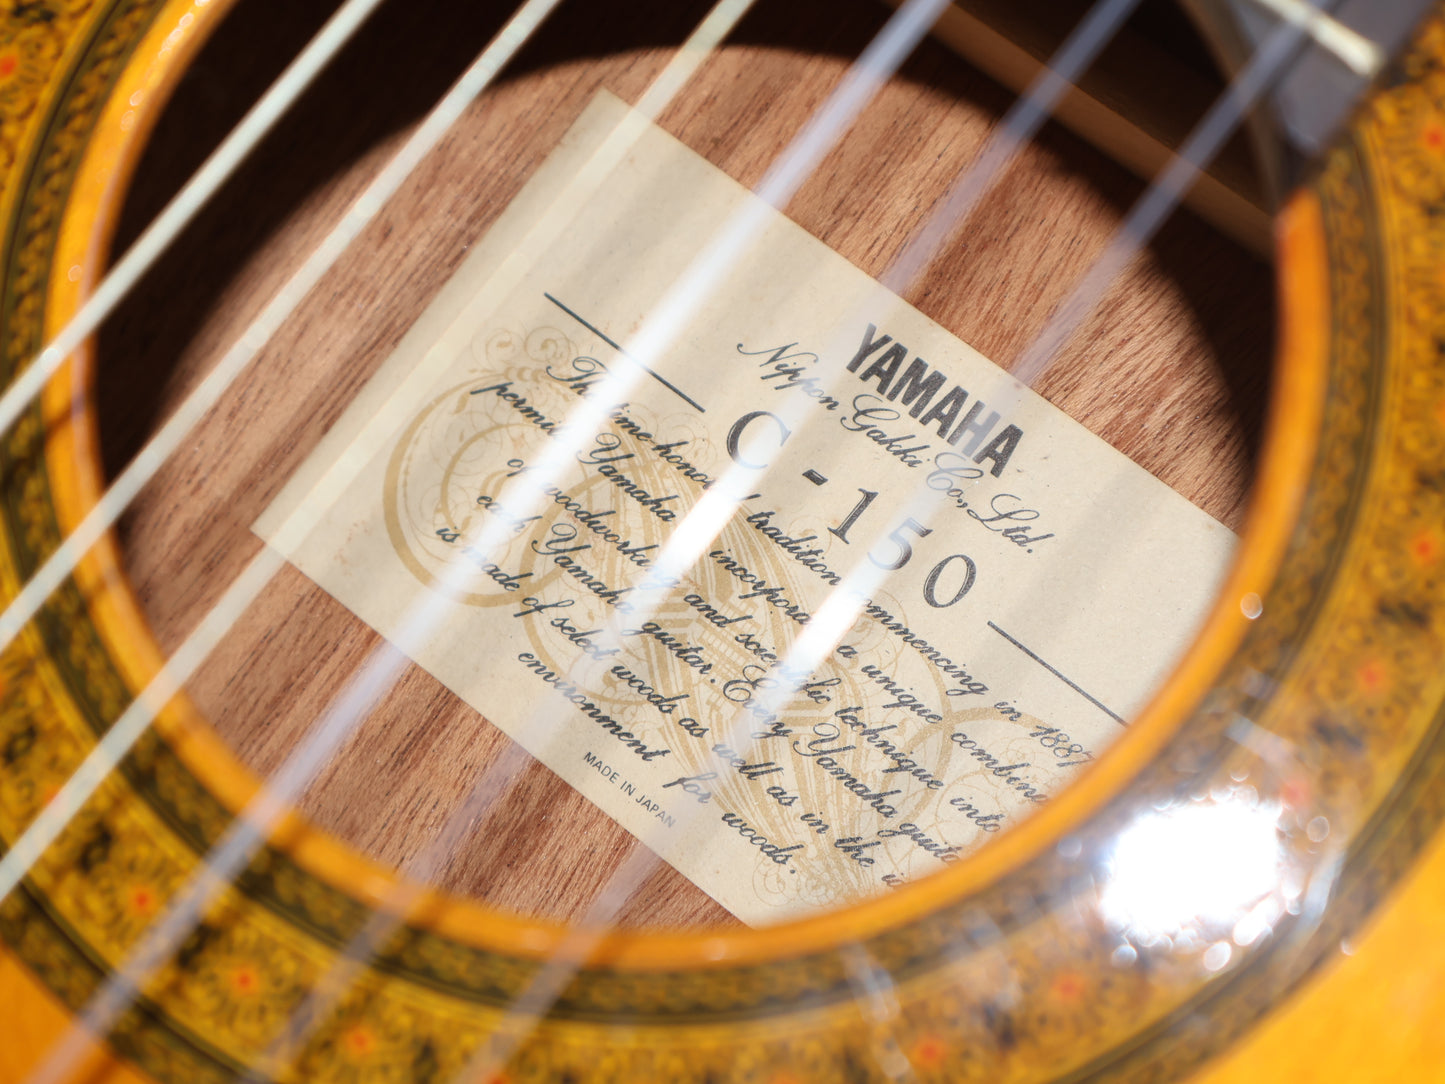 YAMAHA
Nippon Gakki Co., Ltd.
C-150
The time honored tradition commencing in 1887
permits Yamaha incorporate a unique combina
of woodworking and scientific technique into
each Yamaha guitar. Every Yamaha guita
is made of select woods as well as in the
environment for woods.
MADE IN JAPAN